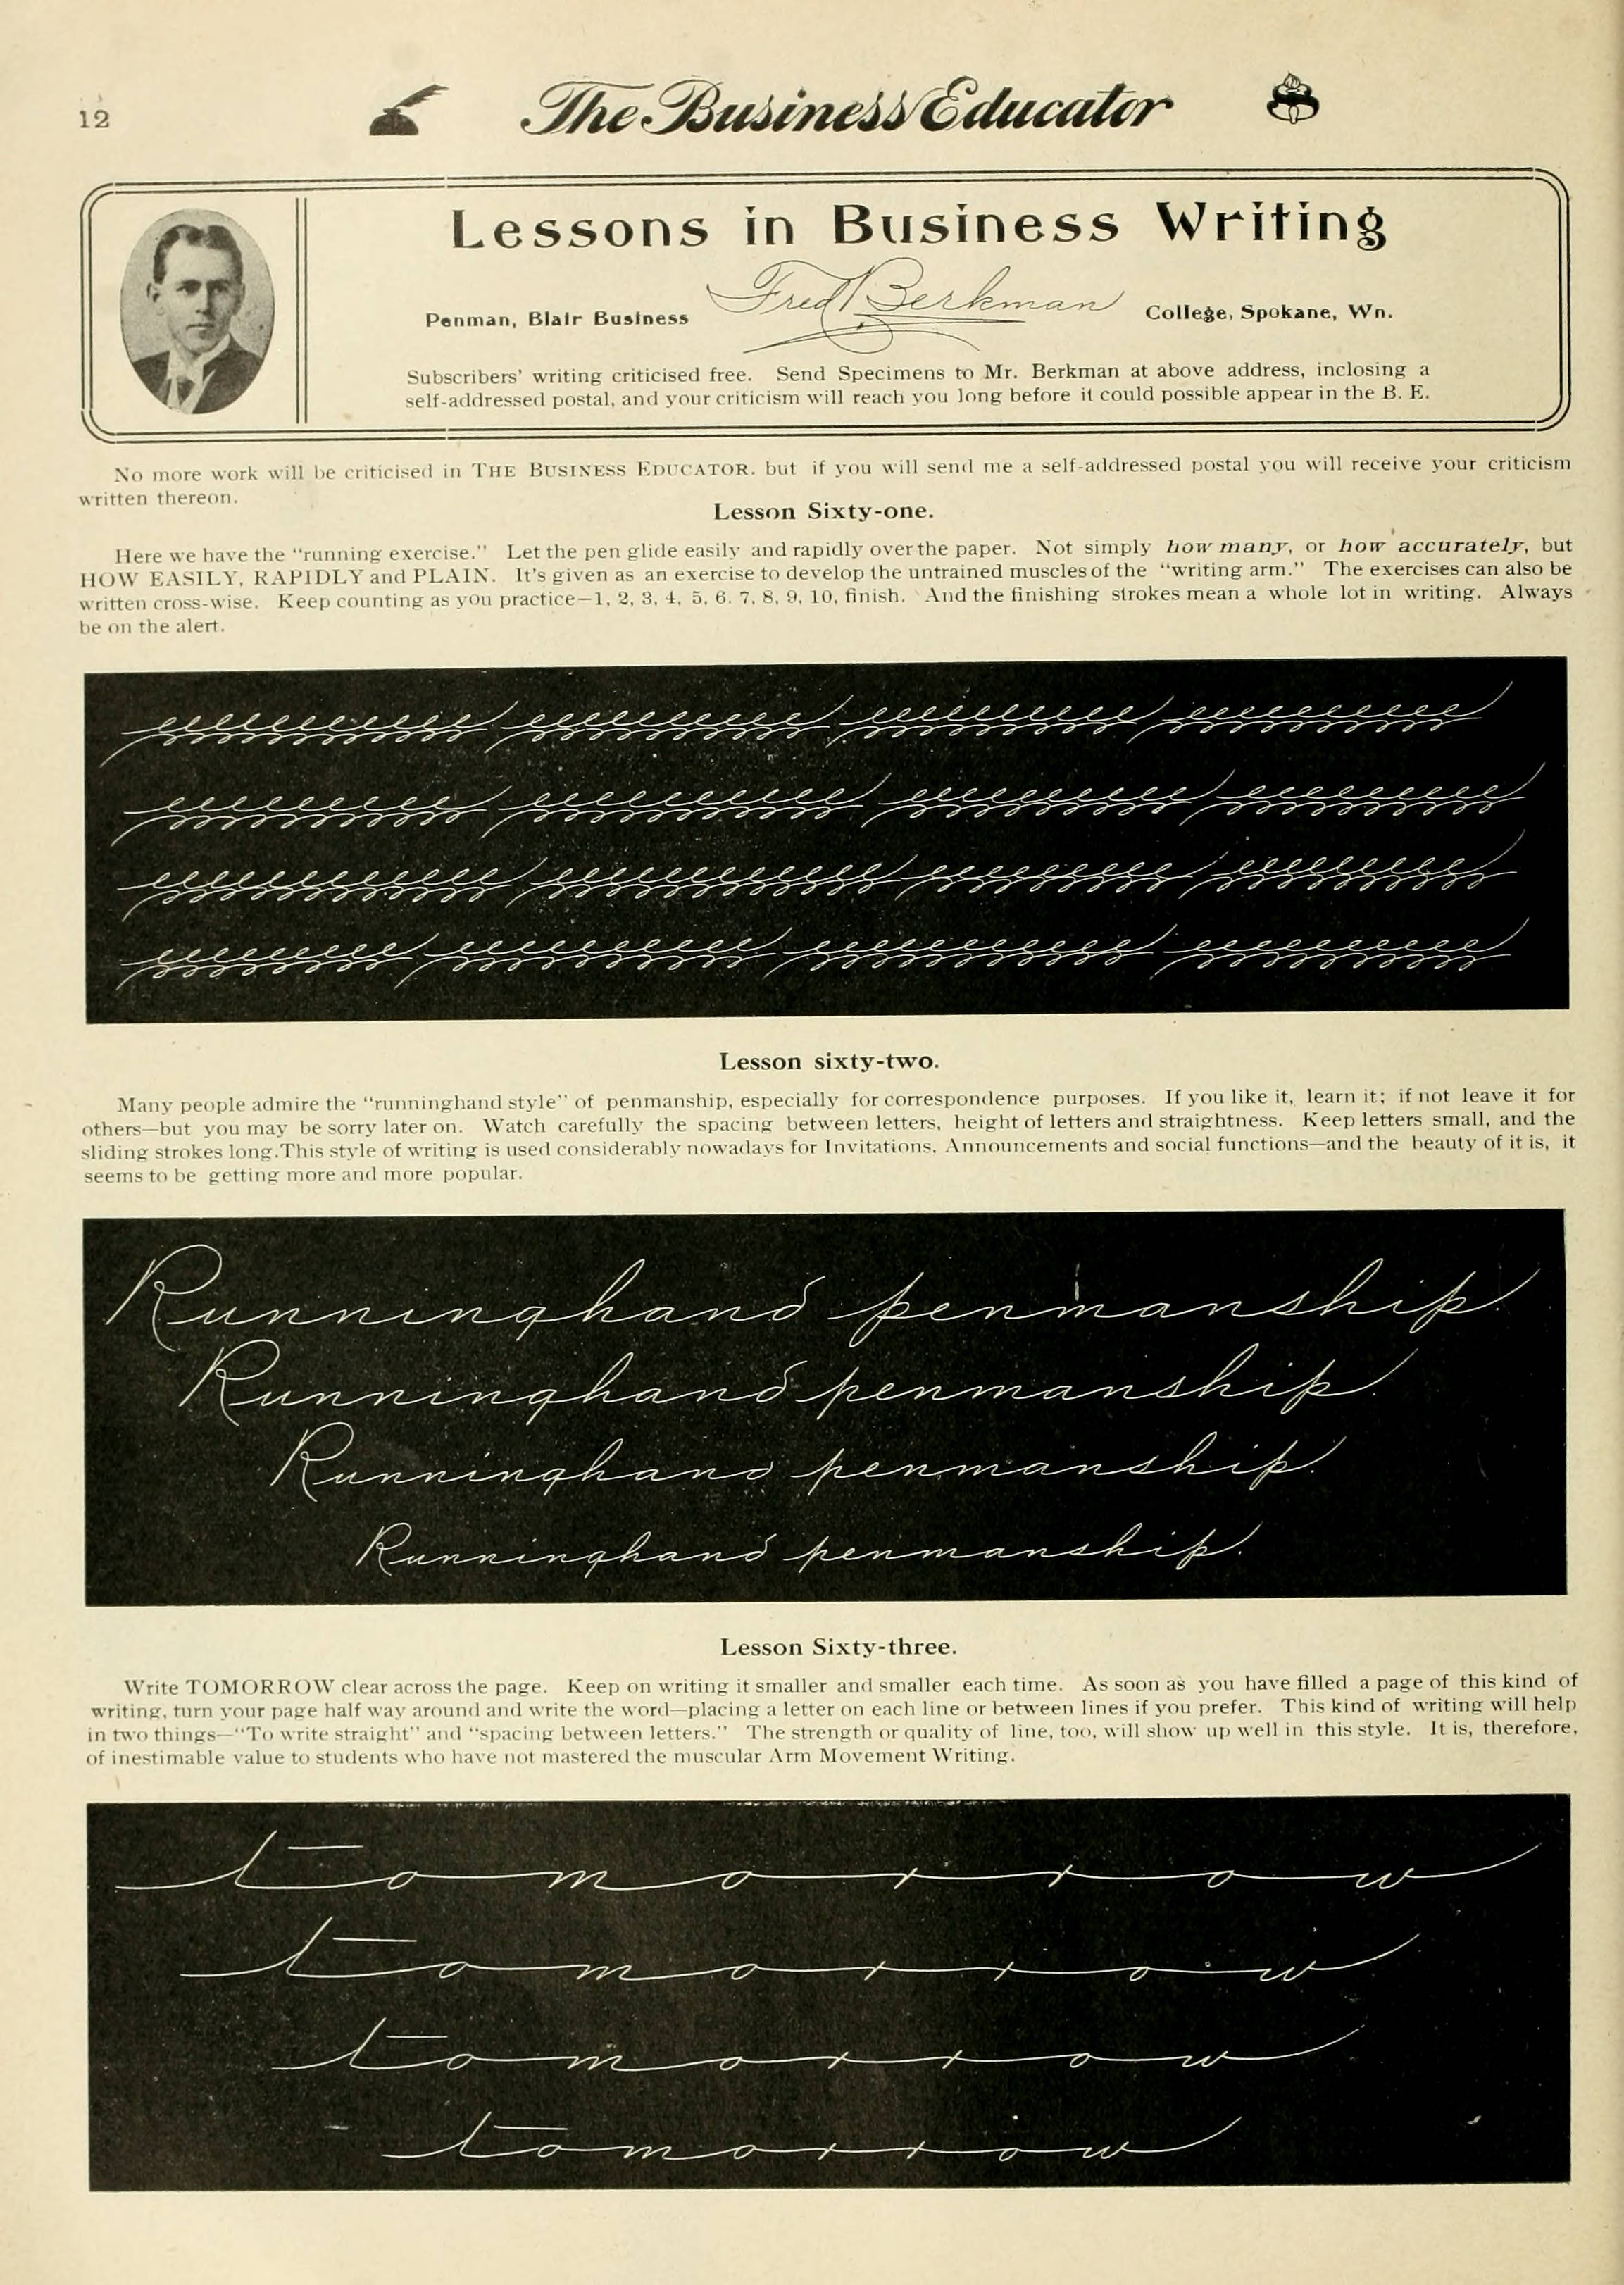 12
The Business Educator
Lessons in Business Writing
Fred Berkman
Penman, Blair Business
College, Spokane, Wn.
Subscribers' writing criticised free. Send Specimens to Mr. Berkman at above address, inclosing a
self-addressed postal, and your criticism will reach you long before it could possible appear in the B. E.
No more work will be criticised in THE BUSINESS EDUCATOR. but if you will send me a self-addressed postal you will receive your criticism
written thereon.
Lesson Sixty-one.
Here we have the "running exercise." Let the pen glide easily and rapidly over the paper. Not simply how many, or how accurately, but
HOW EASILY, RAPIDLY and PLAIN. It's given as an exercise to develop the untrained muscles of the "writing arm." The exercises can also be
written cross-wise. Keep counting as you practice—1, 2, 3, 4, 5, 6. 7, 8, 9, 10, finish. And the finishing strokes mean a whole lot in writing. Always
be on the alert.
Lesson sixty-two.
Many people admire the "runninghand style" of penmanship, especially for correspondence purposes. If you like it, learn it; if not leave it for
others—but you may be sorry later on. Watch carefully the spacing between letters, height of letters and straightness. Keep letters small, and the
sliding strokes long.This style of writing is used considerably nowadays for Invitations, Announcements and social functions—and the beauty of it is, it
seems to be getting more and more popular.
Runninghand penmanship.
Runninghand penmanship.
Runninghand penmanship.
Runninghand penmanship.
Lesson Sixty-three.
Write TOMORROW clear across the page. Keep on writing it smaller and smaller each time. As soon as you have filled a page of this kind of
writing, turn your page half way around and write the word—placing a letter on each line or between lines if you prefer. This kind of writing will help
in two things—"To write straight" and "spacing between letters." The strength or quality of line, too, will show up well in this style. It is, therefore,
of inestimable value to students who have not mastered the muscular Arm Movement Writing.
tomorrow
tomorrow
tomorrow
tomorrow